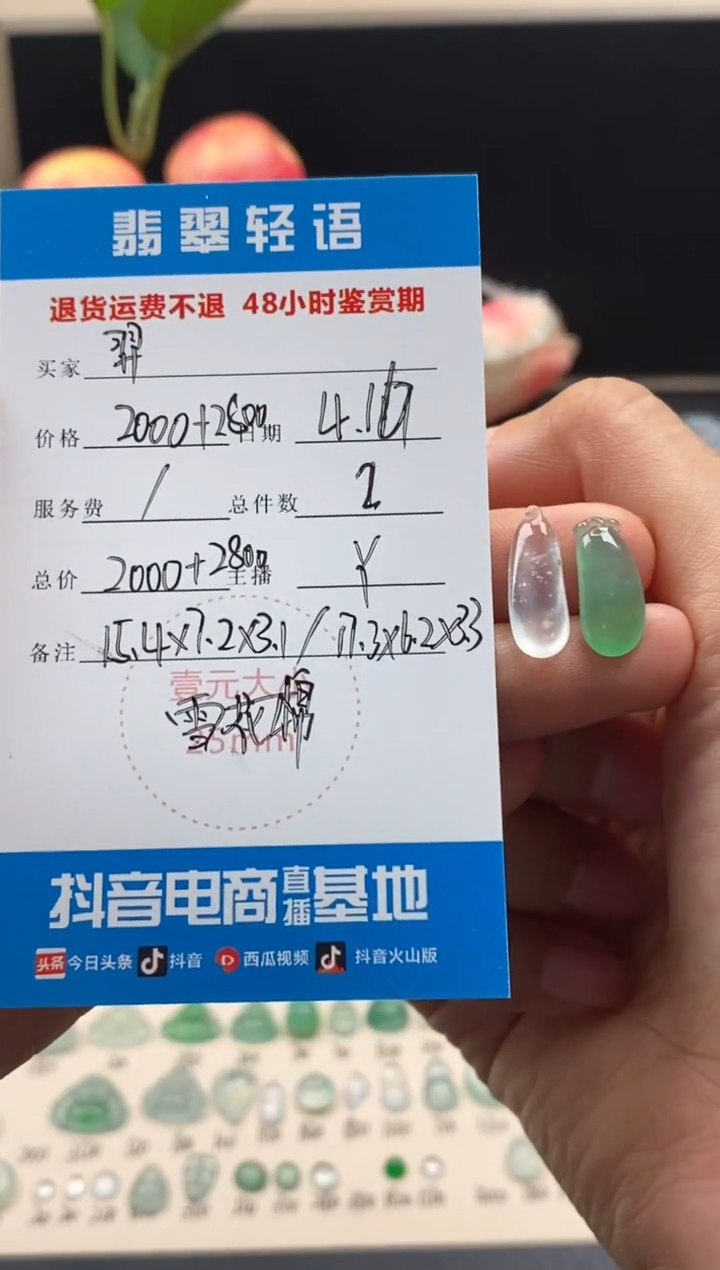 翡翠轻语
退货运费不退 48小时鉴赏期
买家 羿
价格 2000+2800 日期 4.16
服务费 / 总件数 2
总价 2000+2800 主播 Y
备注 15.4×7.2×3.1 / 17.3×6.2×3.3
壹元大小
雪花棉
25mm
抖音电商直播基地
头条 今日头条 抖音 西瓜视频 抖音火山版